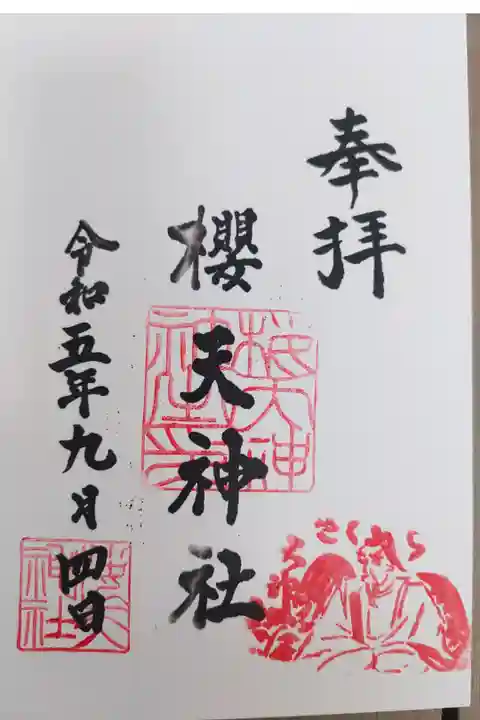 奉拝
櫻天神社
令和五年九月四日
櫻天神社印
さくら
櫻天神社